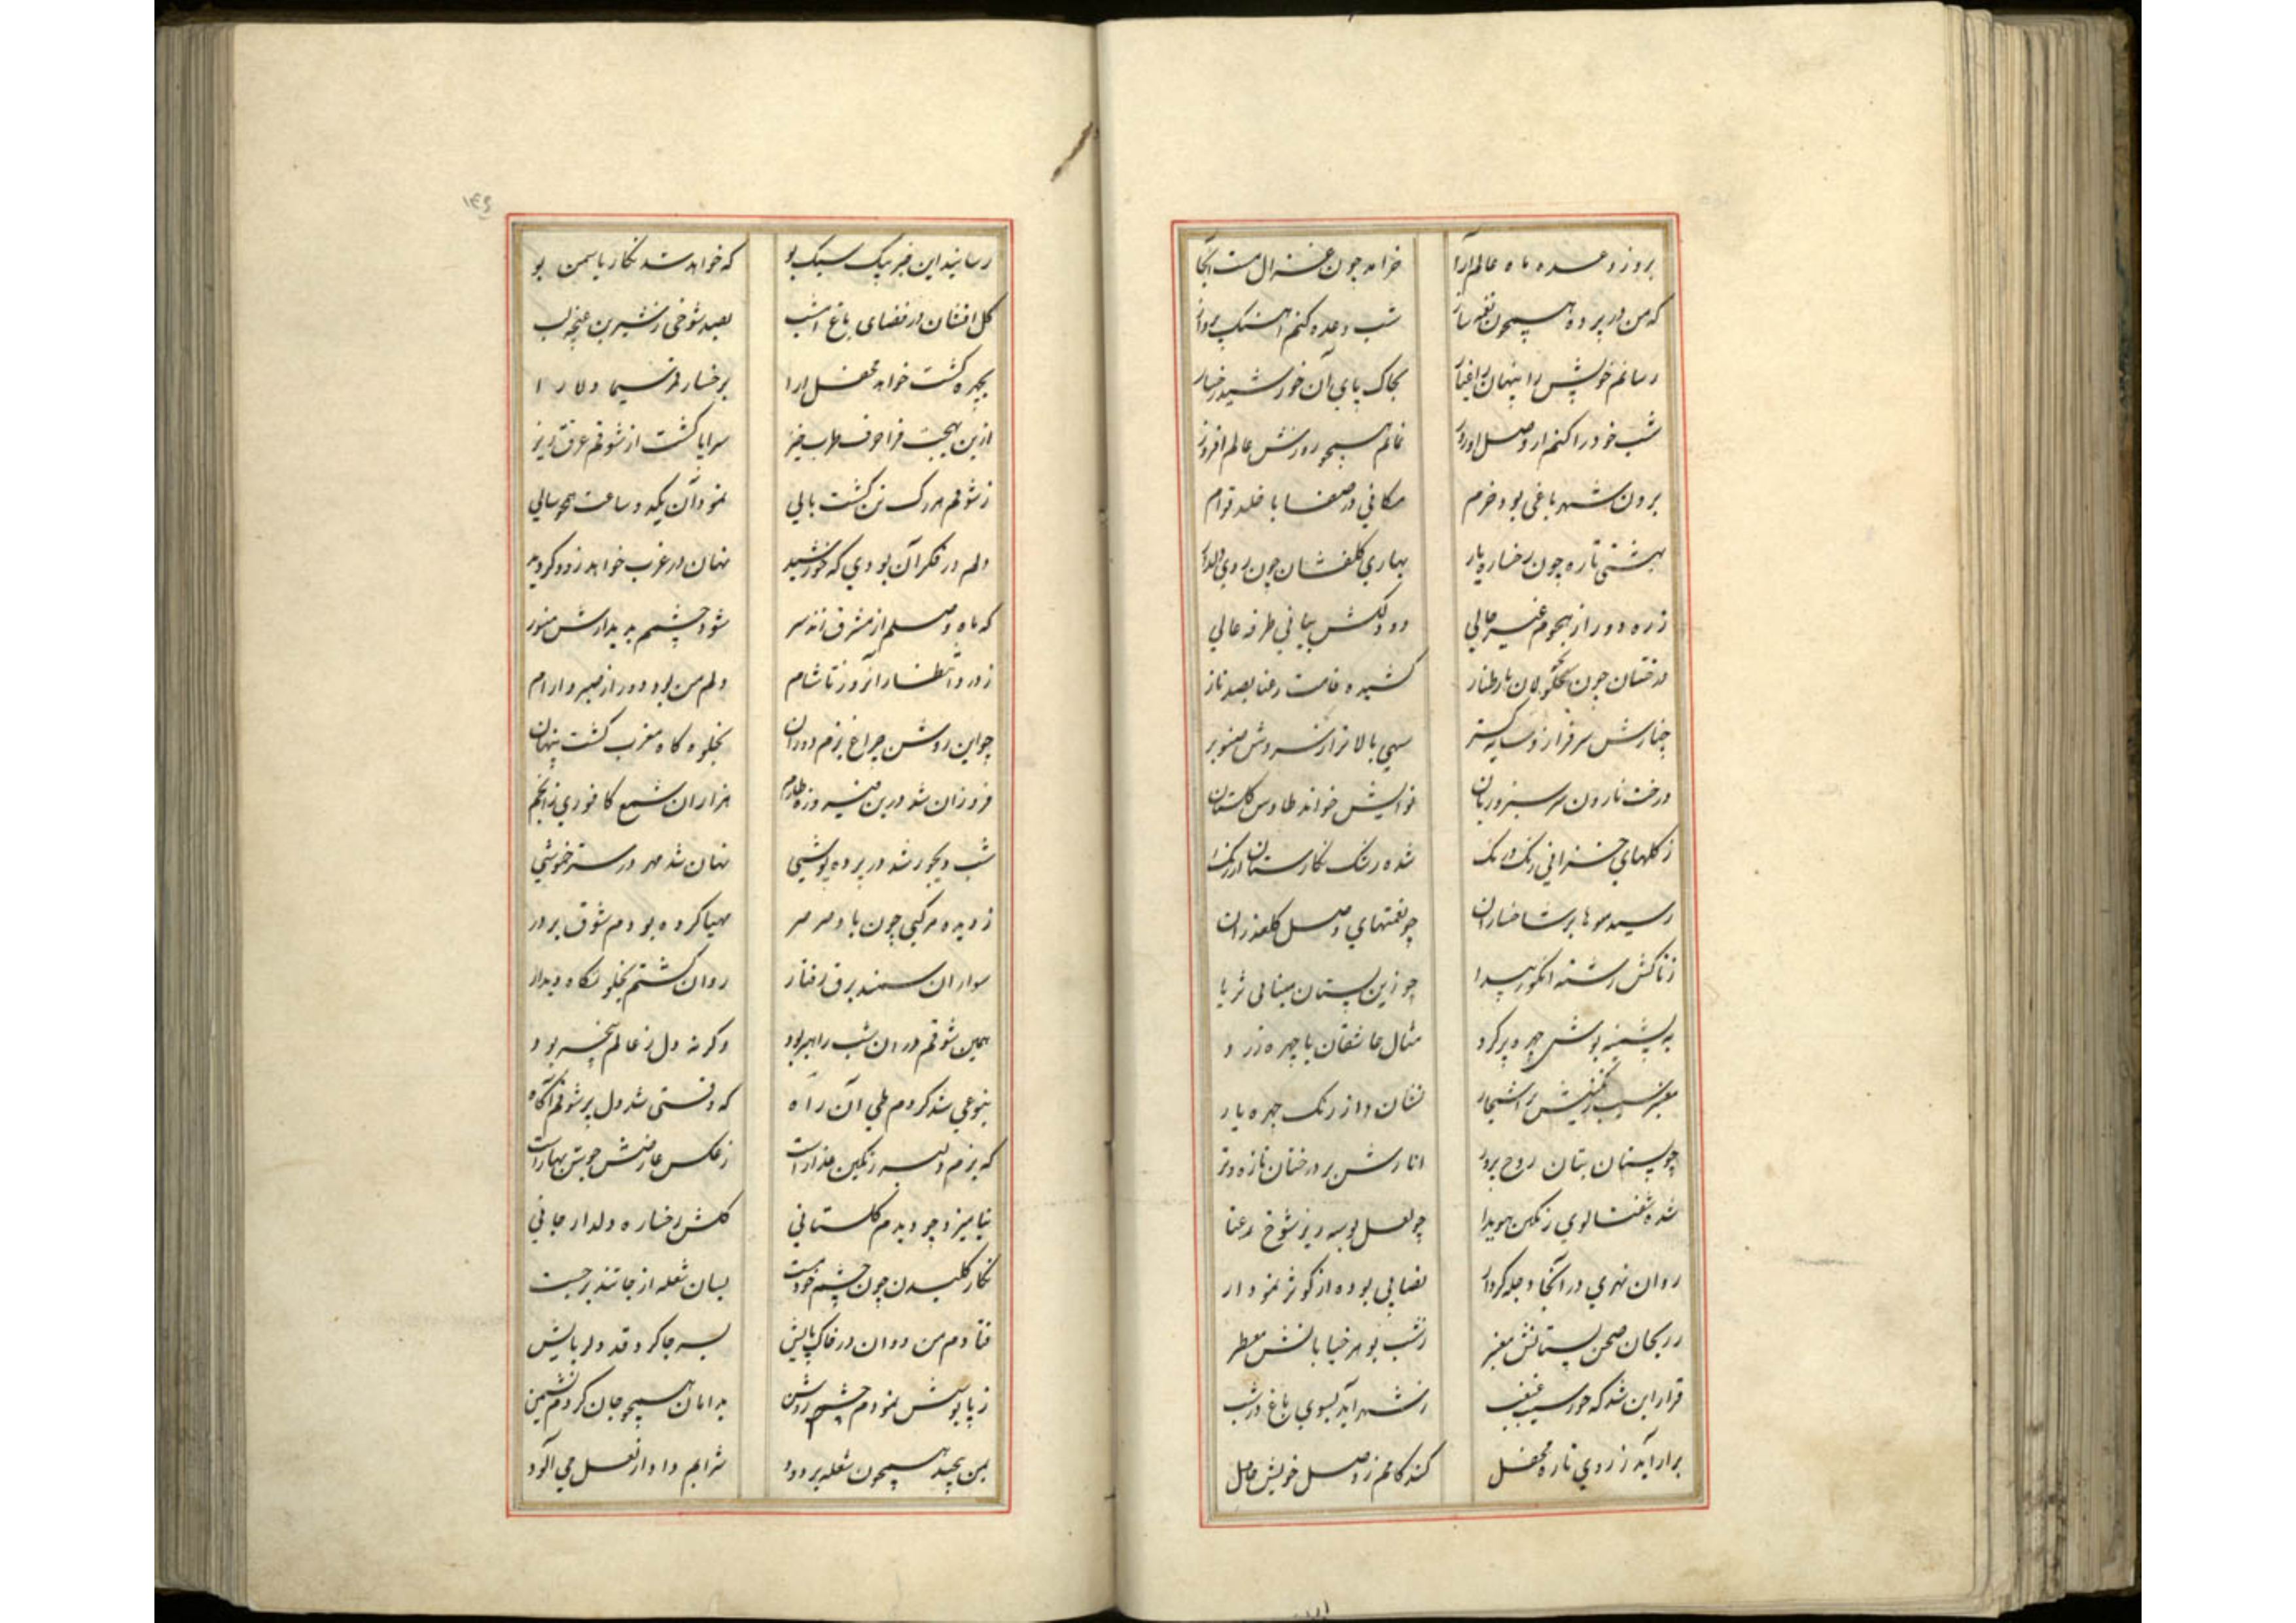 بروز وعده ماه عالم آرا خرامد چون غزال مست آنجا
که من در پرده همچون نغمه ساز شب وعده کنم آهنک پرواز
رسانم خویش را پنهان ز اغیار بخاک پای آن خورشید رخسار
شب خود را کنم از وصل او روز نمایم همچو روزش عالم افروز
برون شهر باغی بود خرم مکانی در صفا با خلد توام
بهشتی تازه چون رخساره یار بهاری کلفشان چون روی دلدار
ز ره دور از هجوم غیر خالی دلکش طرفه عالی
درختان چون طناز کشیده قامت رعنا بصد ناز
چنارش سرفراز و سایه کستر سهی بالا تر از سروش صنوبر
درخت نارون سرسبز و ریان نوایش خواند طاوس کلستان
ز کلهای خزانی رنک در نک شده رشک نکارستان ارژنک
رسیده میوها بر شاخساران چو نعمتهای وصل کلعذاران
ز تاکش رشته انکور پیدا چو زین بستان مینایی ثریا
به پشمینه پوش چهره پر کرد مثال عاشقان با چهره زرد
معنبر سیب رنکینش بر اشجار نشان داد از رنک چهره یار
چو پستان بتان روح پرور انارش بر درختان تازه و تر
شده شفتالوی رنکین هویدا چو لعل بوسه ریز شوخ رعنا
روان نهری در آنجا دجله کردار بصافی بوده از کوثر نمودار
ز ریحان صحن بستانش معنبر ز شب بو هر خیابانش معطر
قرار این شد که حور سیب غبغب ز شهر آید بسوی باغ در شب
برآراید ز روی تازه محفل کند کامم ز وصل خویش حاصل
۱۳۶
رسانید این خبر پیک سبک پو که خواهد شد نکار یاسمن بو
کل افشان در فضای باغ امشب بصد شوخی ز شیرین غنچه لب
بچهره کشت خواهد محفل ارا برخسار قمر سیما دلارا
ازین بهجت فزا حرف طرب خیز سراپا کشت از شوقم عرق ریز
ز شوقم هر رک تن کشت بالی نمود آن یکدو ساعت همچو سالی
دلم در فکر آن بودی که خورشید نهان در غرب خواهد زود کردید
که ماه وصلم از مشرق زند سر شود چشمم بدیدارش منور
ز درد انتظار آنروز تا شام دلم من بود دور از صبر و ارام
چو این روشن چراغ بزم دوران بخلوه کاه مغرب کشت پنهان
فروزان شد درین فیروزه طارم هزاران شمع کافوری ز انجم
شب دیجور شد در پرده پوشی نهان شد مهر در ستر خموشی
ز دیده مرکبی چون باد صرصر مهیا کرده بودم شوق پرور
سوار ان سمند برق رفتار روان کشتم بخلوتکاه دیدار
همین شوقم در ان شب راهبر بود وکرنه دل ز عالم بیخبر بود
بنوعی شد کردم طی آن راه که وقتی شد دل پر شوقم آکاه
که بزم دلبر رنکین عذار است ز عکس عارضش جوش بهار است
نیامیزد چو دیدم کلستانی کلش رخساره دلدار جانی
نکار کلبدن چون چشم خود مست بسان شعله از جا تند برجست
فتادم من دوان در خاک پایش بسر جا کرد قد دلربایش
ز پابوسش نمودم چشم روشن بدامان همچو جان کردم نشیمن
بمن پیچید همچون شعله بر دود شرابم داد از لعل می آلود